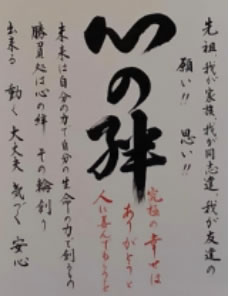 先祖、我が家族、我が同志達、我が友達の
願い!! 思い!!
心の絆
究極の幸せは
ありがとうと
人に喜んでもらうこと
未来は自分の力で自分の生命の力で創るもの
勝負処は心の絆 その輪創り
出来る 動く 大丈夫 気づく 安心